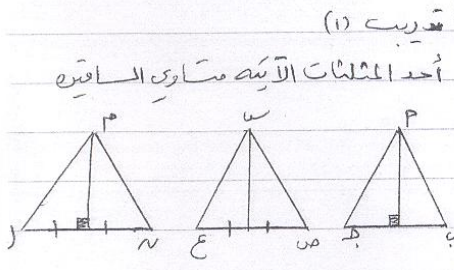 تدريب (١)
أحد المثلثات الآتيه متساوي الساقين
م س م
ل ن ع ص جـ ب